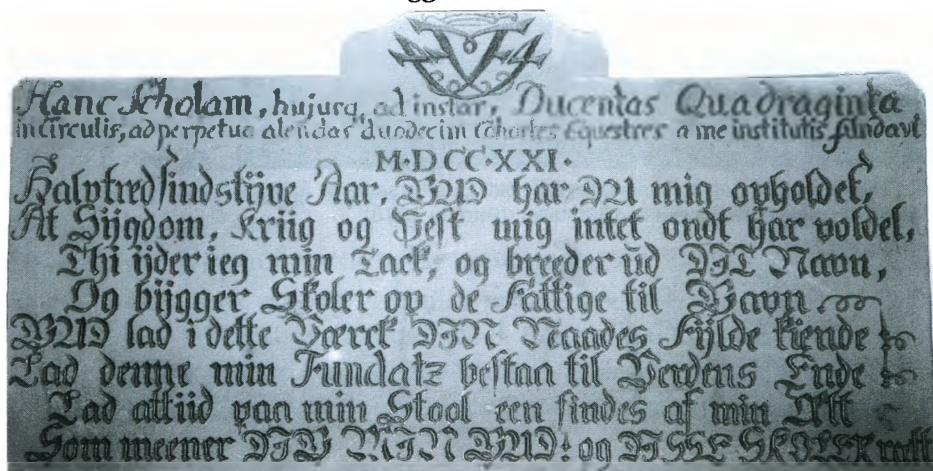 Hanc Scholam, hujusq, ad instar, Ducentas Quadraginta
in Circulis, ad perpetuo alendas duodecim Cohortes Equestres a me institutis, fundavi
M·DCC·XXI·
Halvtredsindstÿve Aar, GUD har DU mig opholdet,
At Sÿgdom, Kriig og Pest mig intet ondt har voldet,
Thi ÿder ieg min Tack, og breeder ud DIT Navn,
Og bÿgger Skoler op de Fattige til Gavn
GUD lad i dette Værck DIN Naades Fÿlde kiende
Lad denne min Fundatz bestaa til Verdens Ende
Lad altiid paa min Stool een findes af min Ætt
Som meener DIG MIN GUD! og DISSE SKOLER rætt